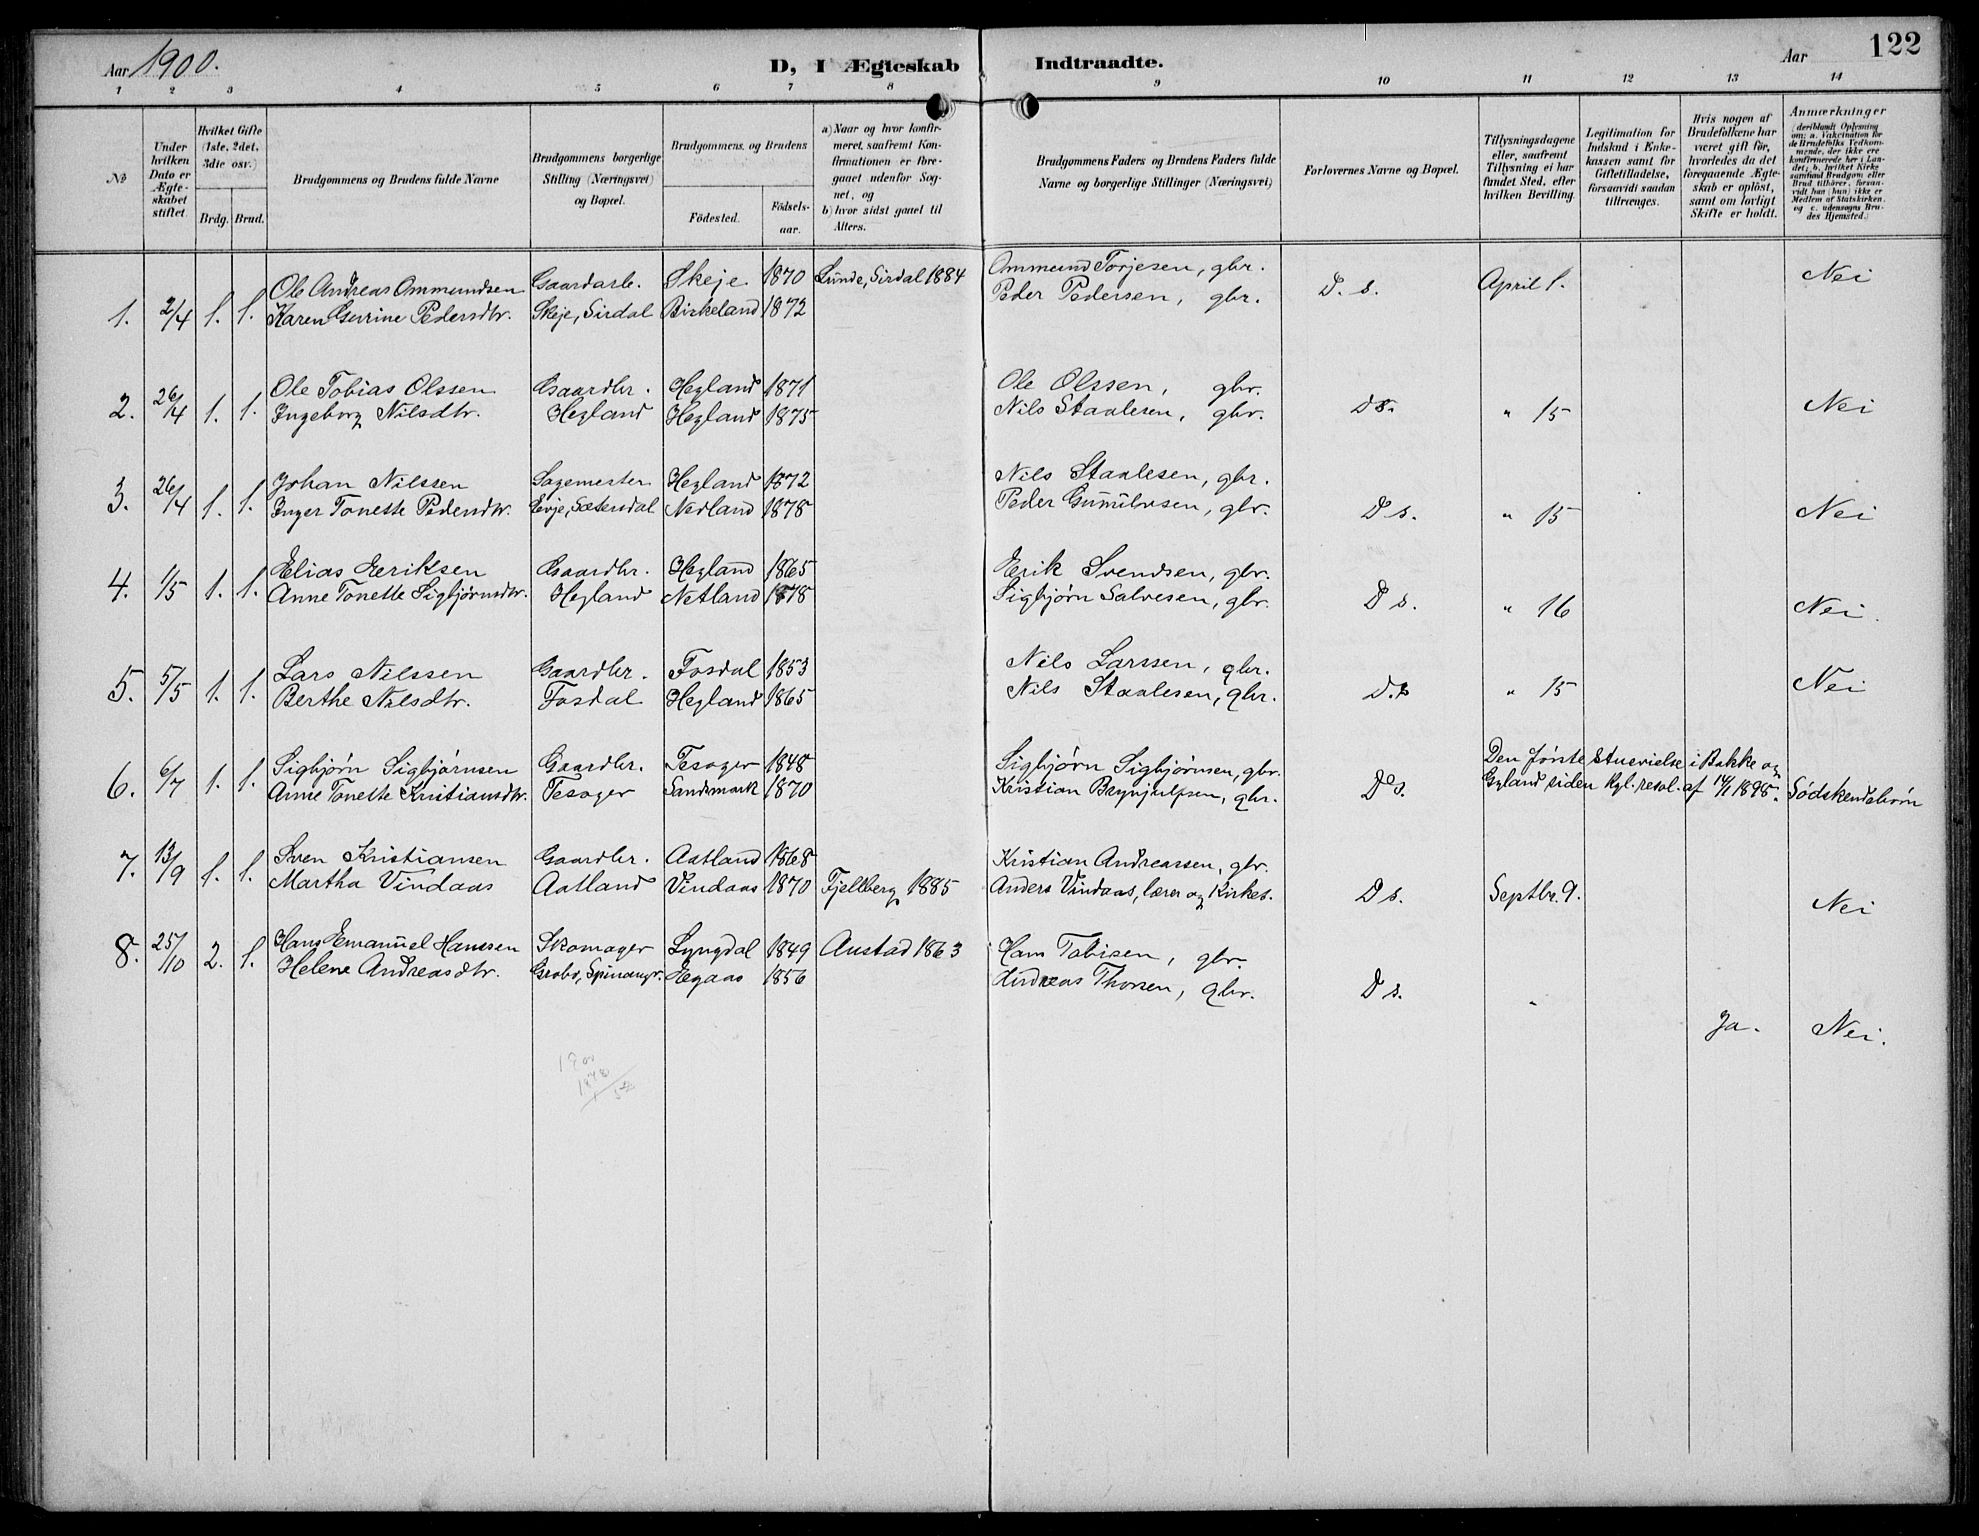 Aar 1900. D, I Ægteskab Indtraadte. Aar 122
1 2 3 4 5 6 7 8 9 10 11 12 13 14
No
Under hvilken Dato er Ægteskabet stiftet.
Hvilket Gifte (1ste, 2det, 3die osv.)
Brdg. Brud.
Brudgommens og Brudens fulde Navne
Brudgommens borgerlige Stilling (Næringsvei) og Bopæl.
Brudgommens og Brudens
Födested. Födselsaar.
a) Naar og hvor konfirmeret, saafremt Konfirmationen er foregaaet udenför Sognet, og
b) hvor sidst gaaet til Alters.
Brudgommens Faders og Brudens Faders fulde Navne og borgerlige Stillinger (Næringsvei)
Forlovernes Navne og Bopæl.
Tillysningsdagene eller, saafremt Tillysning ei har fundet Sted, efter hvilken Bevilling.
Legitimation for Indskud i Enkekassen samt för Giftetilladelse, forsaavidt saadan tiltrænges.
Hvis nogen af Brudefolkene har været gift för, hvorledes da det foregaaende Ægteskab er oplöst, samt om lovligt Skifte er holdt.
Anmærkninger (deriblandt Oplysning om: a. Vakcination for de Brudefolks Vedkommende, der ikke ere konfirmerede her i Landet; b. hvilket Kirkesamfund Brudgom eller Brud tilhörer, forsaavidt han (hun) ikke er Medlem af Statskirken, og c. udensogns Brudes Hjemsted.)
1. 2/4 1. 1. Ole Andreas Ommundsen Gaardarb. Skeje 1870 Lunde, Sirdal 1884 Ommund Torjesen, gbr. D. s. April 1. Nei
Karen Gurine Pedersdtr. Skeje, Sirdal Birkeland 1872 Peder Pedersen, gbr.
2. 26/4 1. 1. Ole Tobias Olssen Gaardbr. Hegland 1871 Ole Olssen, gbr. D s. " 15 Nei
Ingeborg Nilsdtr. Hegland Hegland 1875 Nils Staalesen, gbr.
3. 26/4 1. 1. Johan Nilssen Sagemester Hegland 1872 Nils Staalesen, gbr. D s. " 15 Nei
Inger Tonette Pedersdtr. Evje, Sætersdal Nedland 1878 Peder Gunnulvsen, gbr.
4. 1/5 1. 1. Elias Eriksen Gaardbr. Hegland 1865 Erik Svendsen, gbr. D s. " 16 Nei.
Anne Tonette Sigbjørnsdtr. Hegland Netland 1878 Sigbjørn Salvesen, gbr.
5. 5/5 1. 1. Lars Nilssen Gaardbr. Fosdal 1853 Nils Larssen, gbr. D. s " 15 Nei
Berthe Nilsdtr. Fosdal Hegland 1865 Nils Staalesen, gbr.
6. 6/7 1. 1. Sigbjørn Sigbjørnsen Gaardbr. Tesager 1848 Sigbjørn Sigbjørnsen, gbr. Ds. Den første Stuevielse i Bakke og
Anne Tonette Kristiansdtr. Tesager Sandsmark 1870 Kristian Brynjulfsen, gbr. Gyland siden Kgl. resol. af 14/1 1895. Sødskendebørn
7. 13/9 1. 1. Sven Kristiansen Gaardbr. Aatland 1868 Kristian Andreassen, gbr.
Martha Vindaas Aatland Vindaas 1870 Fjellberg 1885 Anders Vindaas, lærer og Kirkes. D s. Septbr. 9. Nei
8. 25/10 2. 1. Hans Emanuel Hanssen Skomager Lyngdal 1849 Austad 1863 Hans Tobisen, gbr.
Helene Andreasdtr. Grobo, Spinangr. Egaas 1856 Andreas Thorsen, gbr. D s. " Ja. Nei.
1900